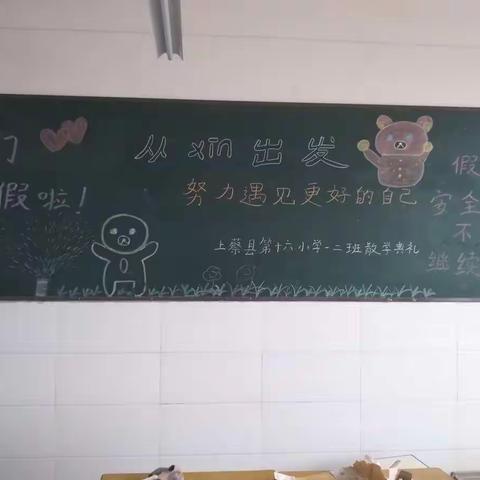 们
假啦！
从xīn出发
努力遇见更好的自己
上蔡县第十六小学一二班散学典礼
假
安全
不
继续